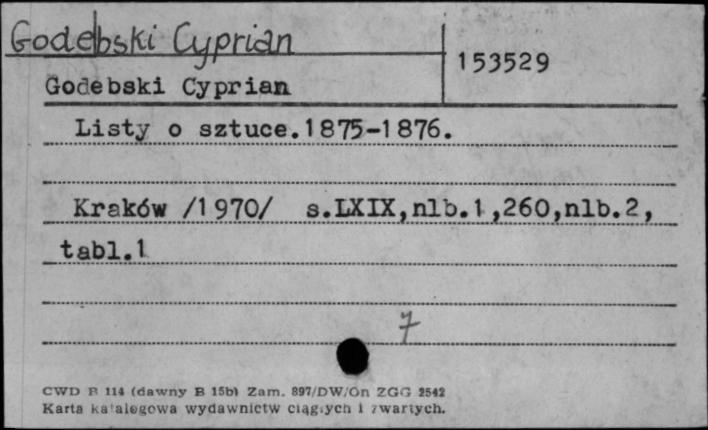 Godebski Cyprian
153529
Godebski Cyprian
Listy o sztuce.1875-1876.
Kraków /1970/ s.LXIX,nlb.1,260,nlb.2,
tabl.1
7
CWD B 114 (dawny B 15b) Zam. 897/DW/On ZGG 2542
Karta katalogowa wydawnictw ciągłych i zwartych.